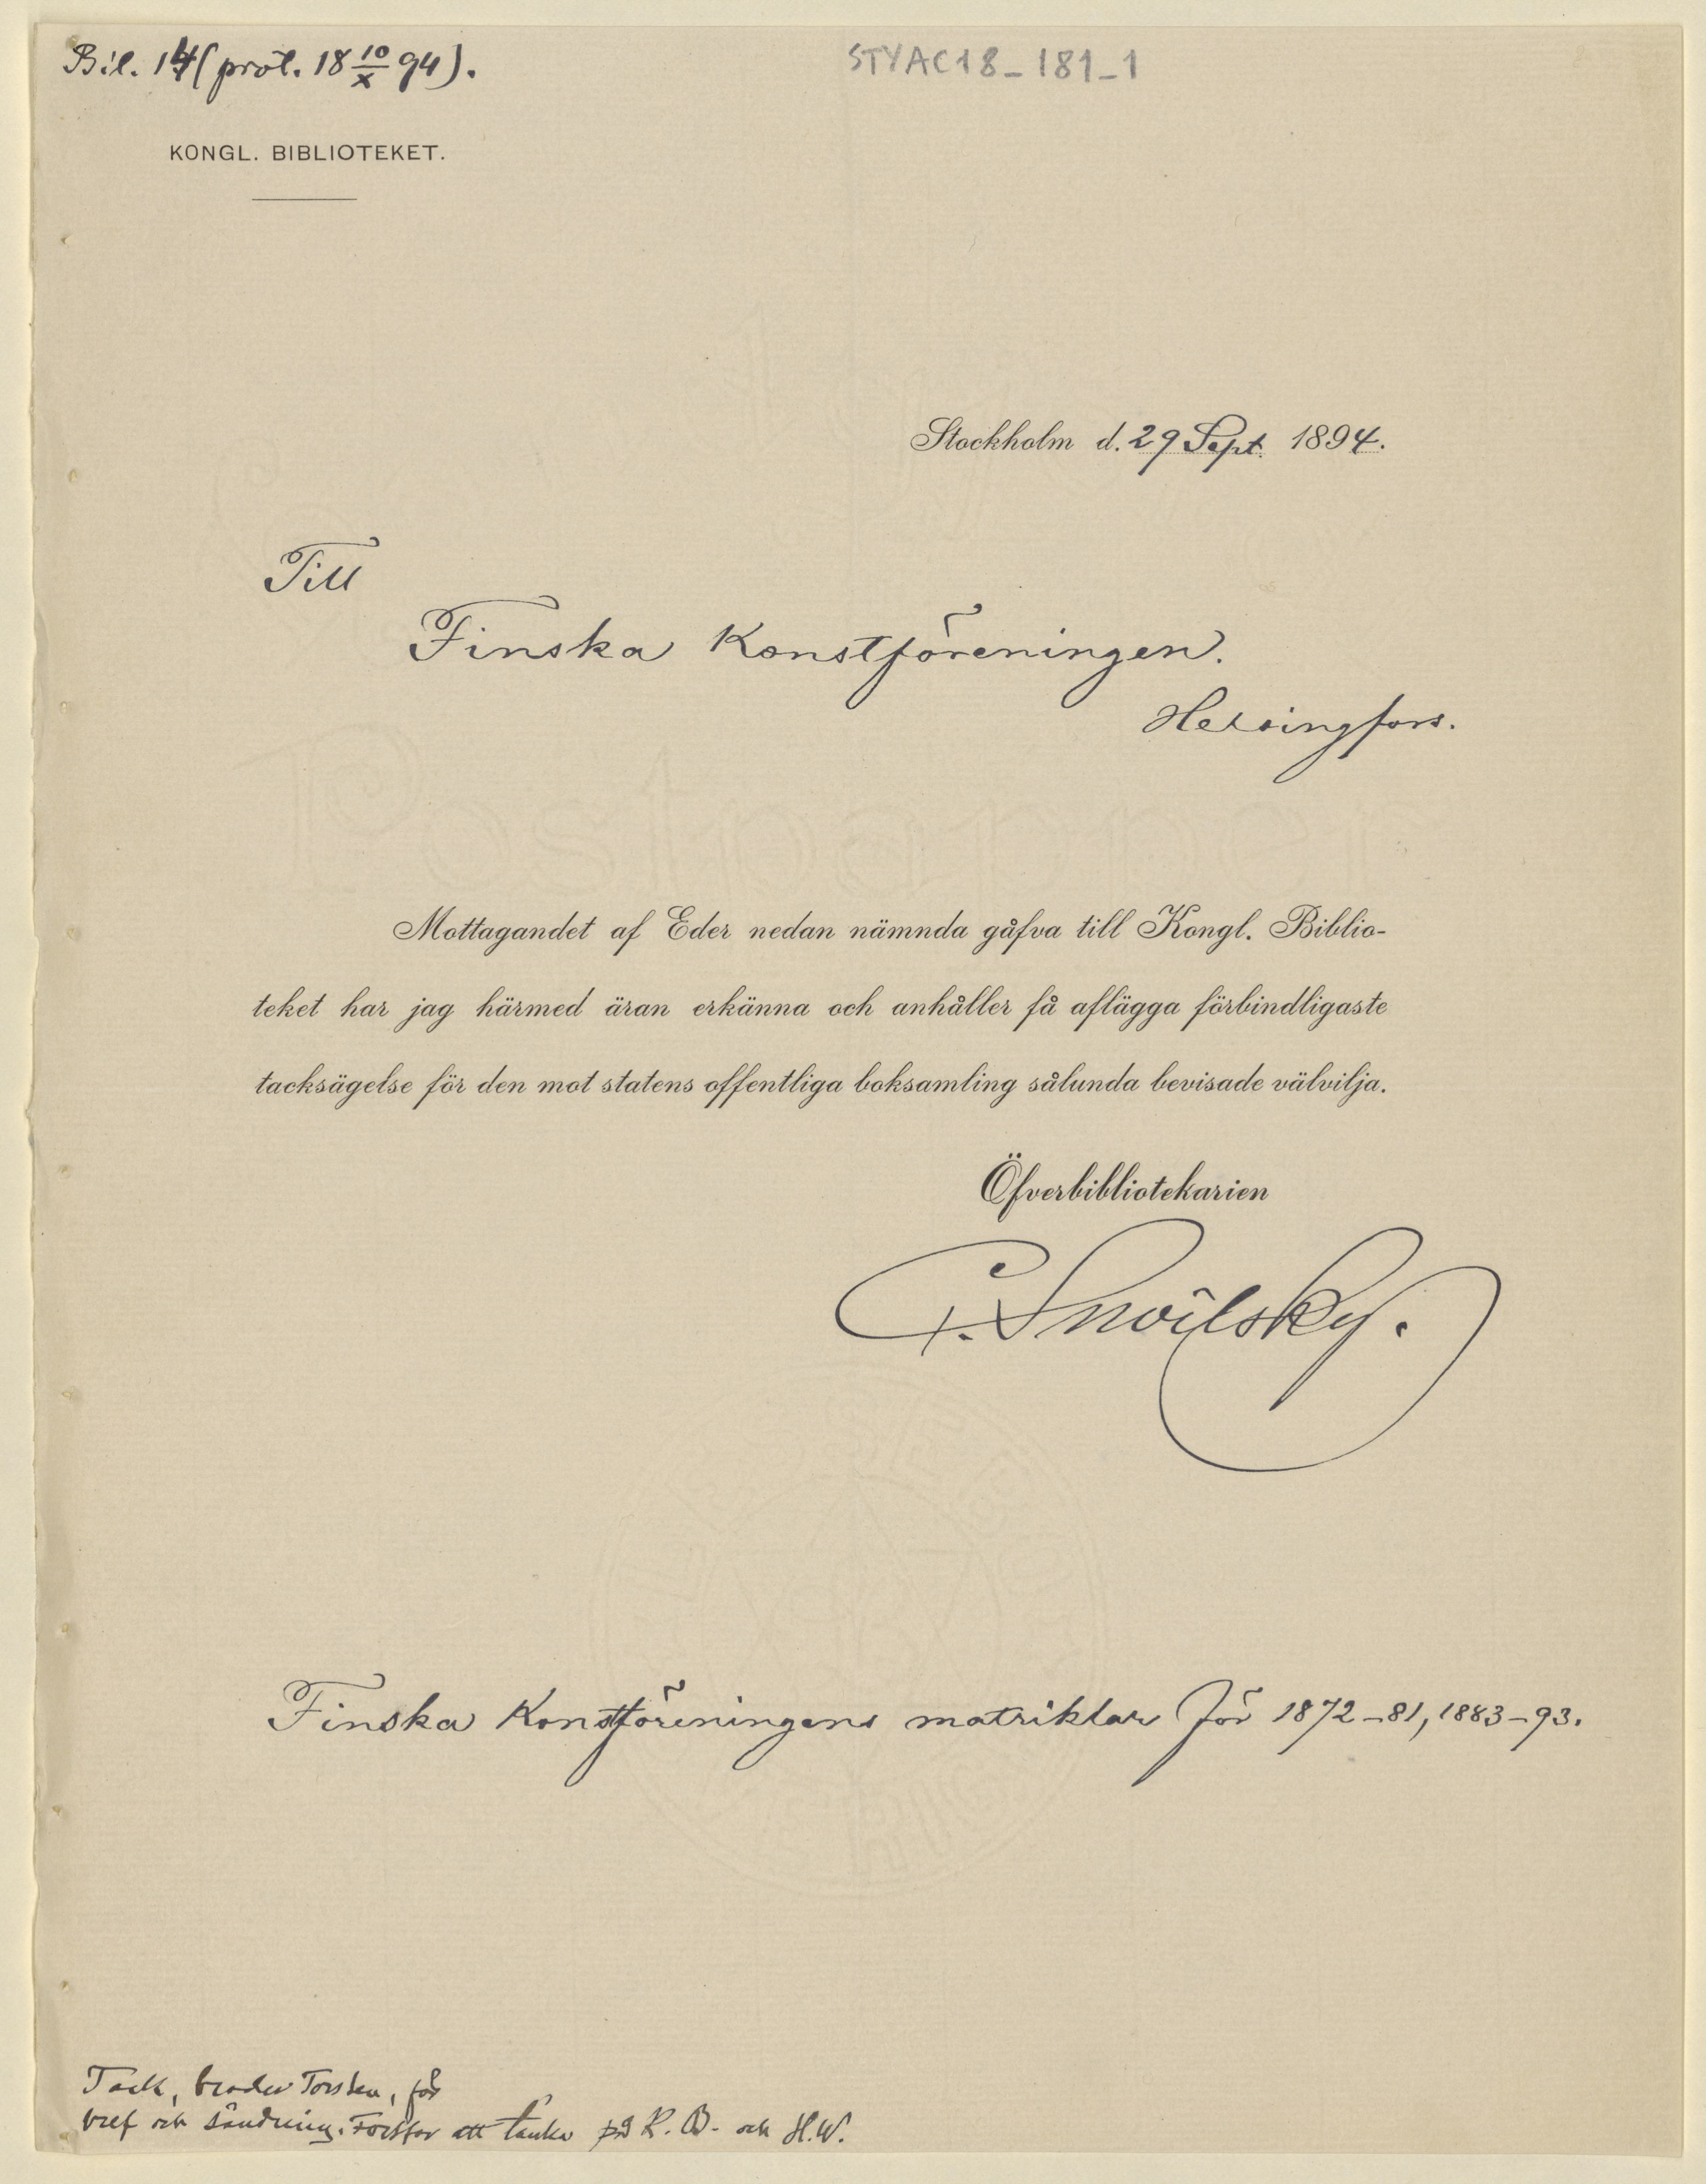 Bil. 14 (prot. 18 10/X 94).
STYAC18_181_1
KONGL. BIBLIOTEKET.
Stockholm d. 29 Sept. 1894.
Till
Finska Konstföreningen.
Helsingfors.
Mottagandet af Eder nedan nämnda gåfva till Kongl. Biblio-
teket har jag härmed äran erkänna och anhåller få aflägga förbindligaste
tacksägelse för den mot statens offentliga boksamling sålunda bevisade välvilja.
Öfverbibliotekarien
C. Snoilsky.
Finska Konstföreningens matriklar för 1872-81, 1883-93.
Tack, broder Torsten, för
bref och sändning. Fortfar att tänka på K. B. och H.W.